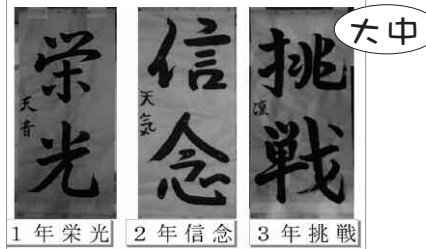 大中
栄光
天音
信念
天気
挑戦
凛
1年栄光
2年信念
3年挑戦